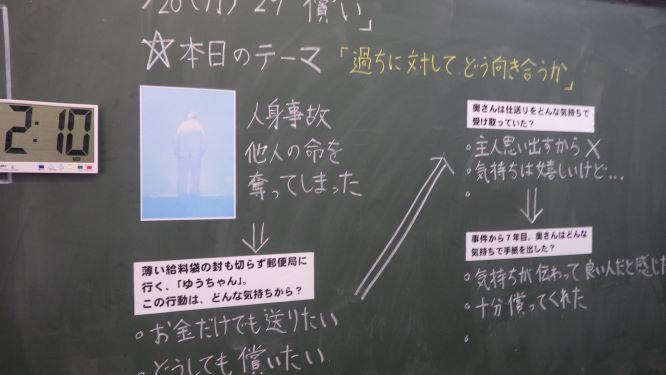 /20(月) 29「償い」
☆本日のテーマ「過ちに対して、どう向き合うか」
2:10
人身事故
他人の命を
奪ってしまった
薄い給料袋の封も切らず郵便局に
行く、「ゆうちゃん」。
この行動は、どんな気持ちから?
○お金だけでも送りたい
○どうしても償いたい
奥さんは仕送りをどんな気持ちで
受け取っていた?
○主人思い出すから×
○気持ちは嬉しいけど…
○
事件から7年目。奥さんはどんな
気持ちで手紙を出した?
○気持ちが伝わって良い人だと感じた
○十分償ってくれた
○